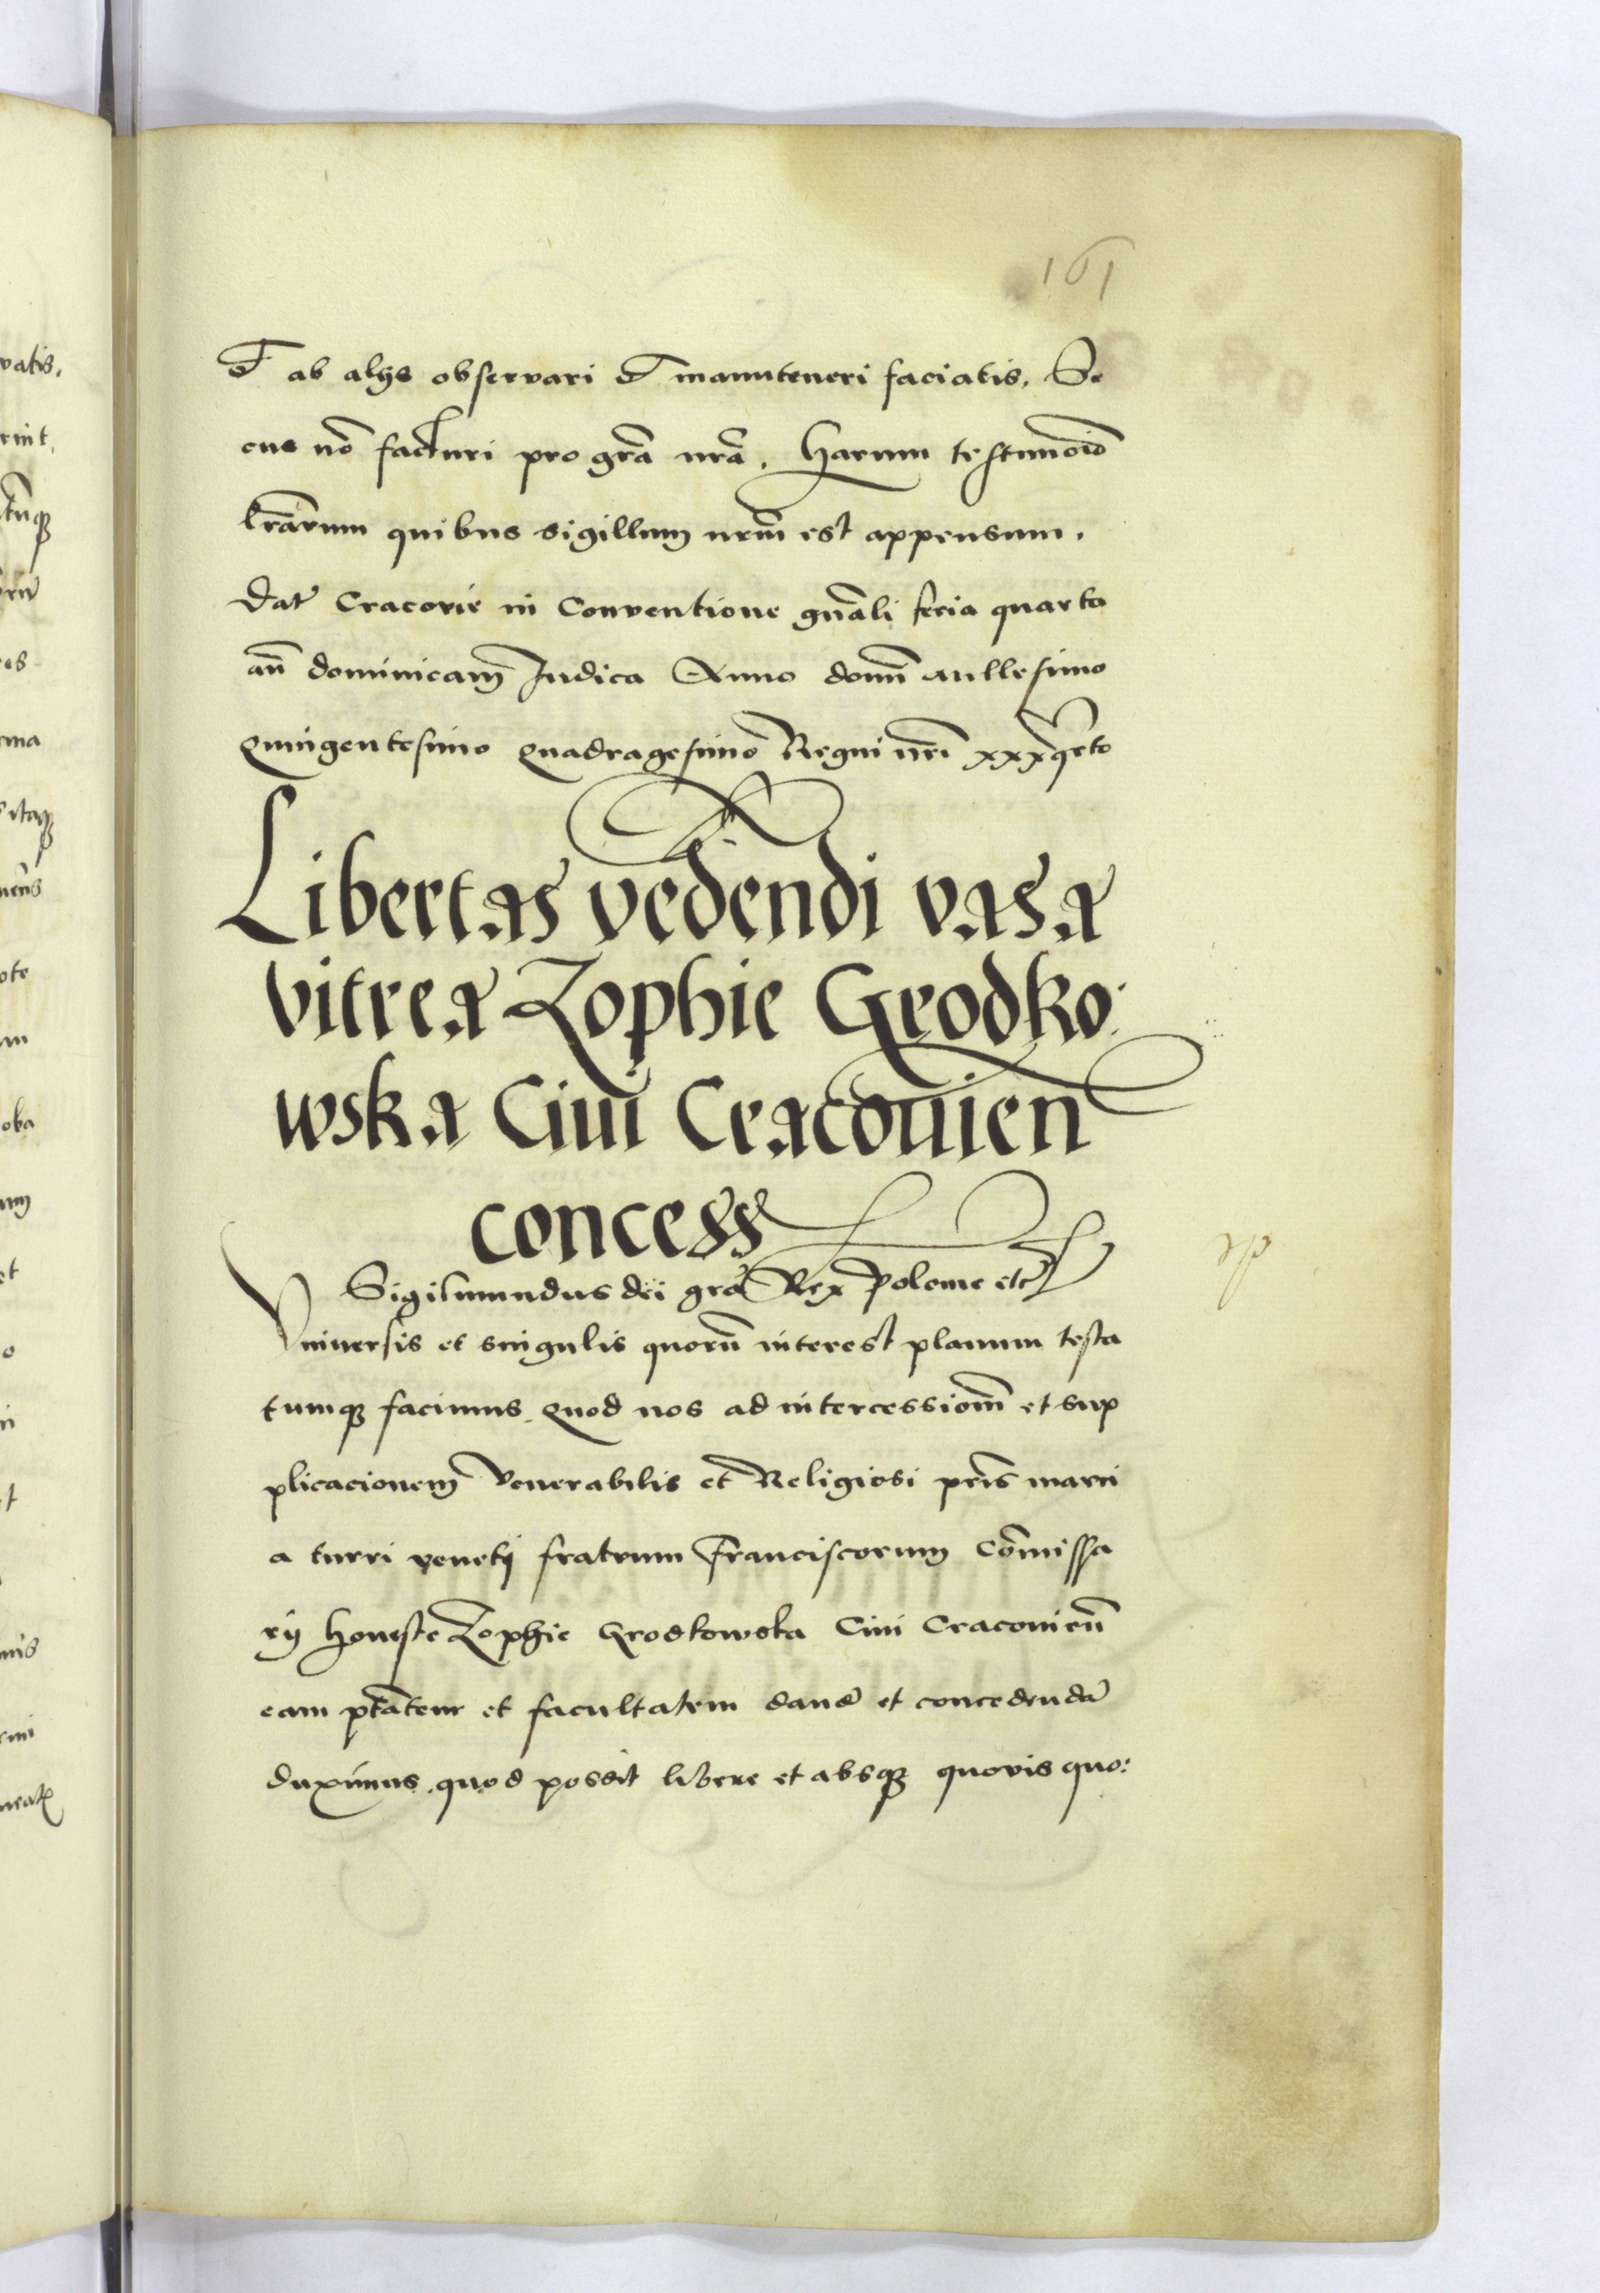 161
Et ab alijs observari et manuteneri faciatis. Se
cus nō facturi pro grā nrā. Harum testimōio
lrārum quibus sigillum nrm̄ est appensum.
Dat̄ Cracovie in Conventione gnāli feria quarta
an̄ dominicam Iudica Anno domn̄ Millesimo
Quingentesimo Quadragesimo Regni nrī xxxqrto
Libertas vēdendi vasa
vitrea Zophie Grodko:
wska Ciui Cracouien
concess
Sigismundus dei grā Rex Polonie etc
Vniuersis et singulis quorū interest planum testa
tumqȝ facimus. Quod nos ad intercessionē et sup
plicacionem Venerabilis et Religiosi pris̄ marci
a turri venetij fratrum Franciscorum Cōmissa
rij Honeste Zophie Grodkowska Ciui Cracouien̄
eam ptātem et facultatem dand̄ et concedendā
duximus. quod possit libere et absqȝ quovis quo: